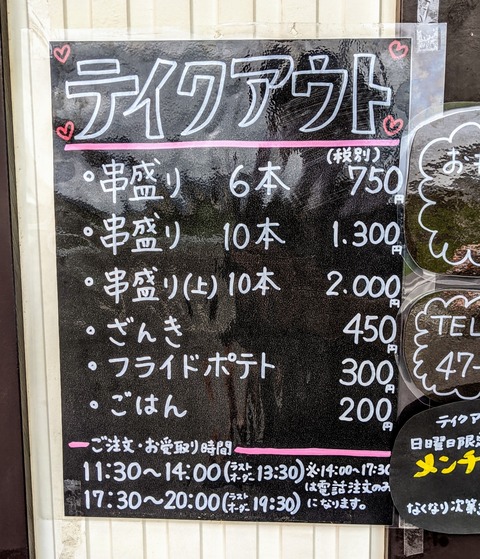 テイクアウト
(税別)
・串盛り 6本 750円
・串盛り 10本 1.300円
・串盛り(上) 10本 2.000円
・ざんき 450円
・フライドポテト 300円
・ごはん 200円
ご注文・お受取り時間
11:30〜14:00(ラストオーダー13:30)
17:30〜20:00(ラストオーダー19:30)
※14:00〜17:30
は電話注文のみ
になります。
TEL
47-
テイクア
日曜日限定
メンチ
なくなり次第